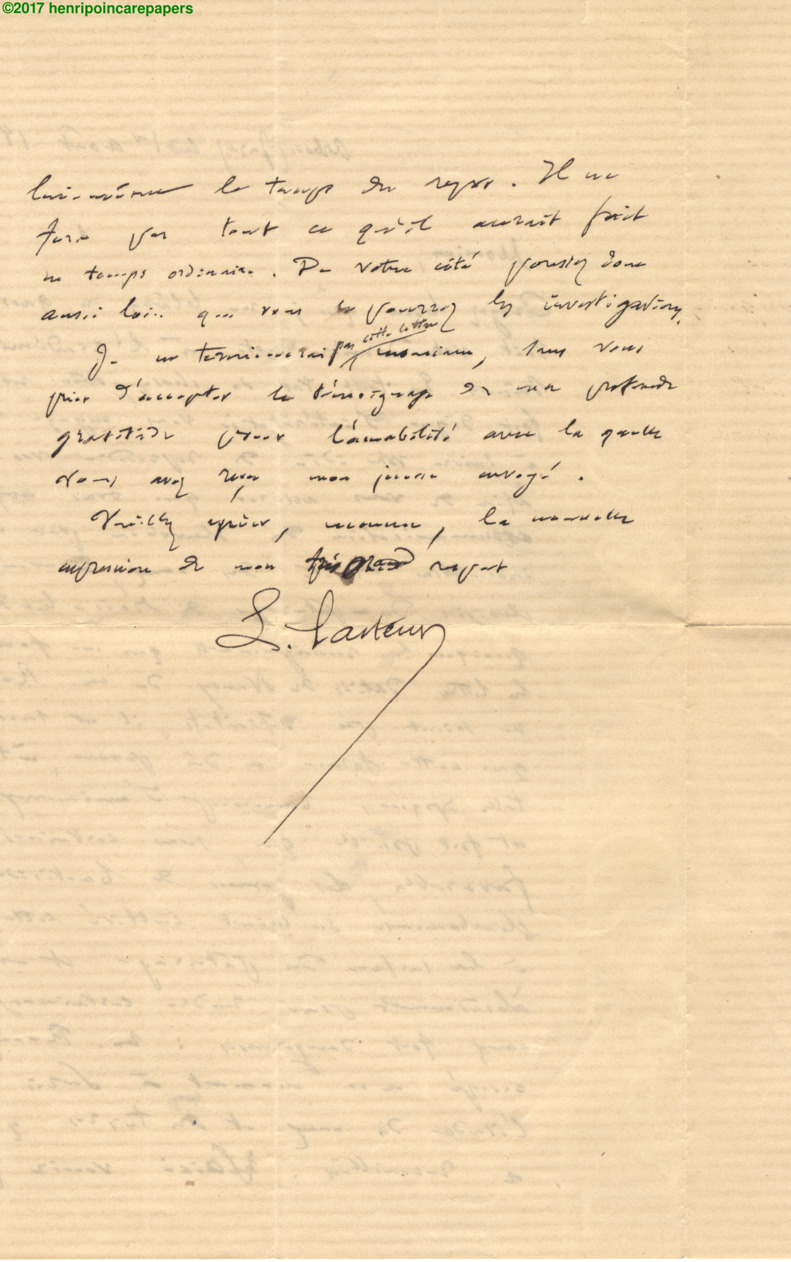 ©2017 henripoincarepapers
lui-même le temps du repos. Il ne
fera pas tout ce qu'il aurait fait
en temps ordinaire. De votre côté poussez donc
aussi loin que vous le pourrez les investigations.
Je ne terminerai pas cette lettre, monsieur, sans vous
prier d'accepter le témoignage de ma profonde
gratitude pour l'amabilité avec laquelle
vous avez reçu mon jeune envoyé.
Veuillez agréer, monsieur, la nouvelle
expression de mon respect
L. Pasteur